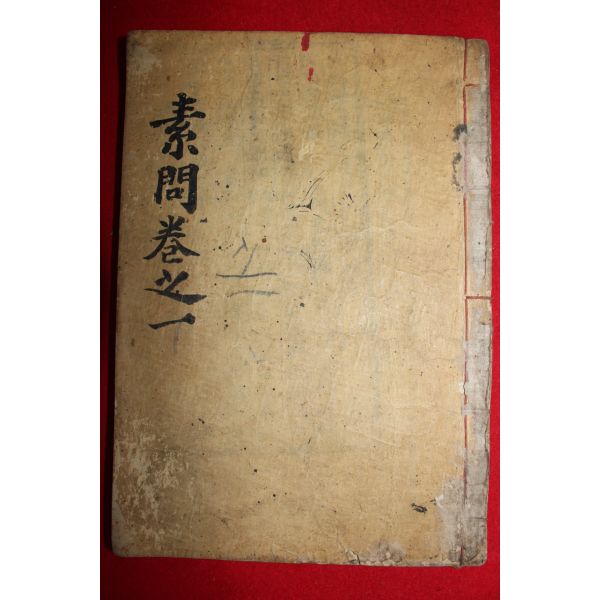 素問卷之一